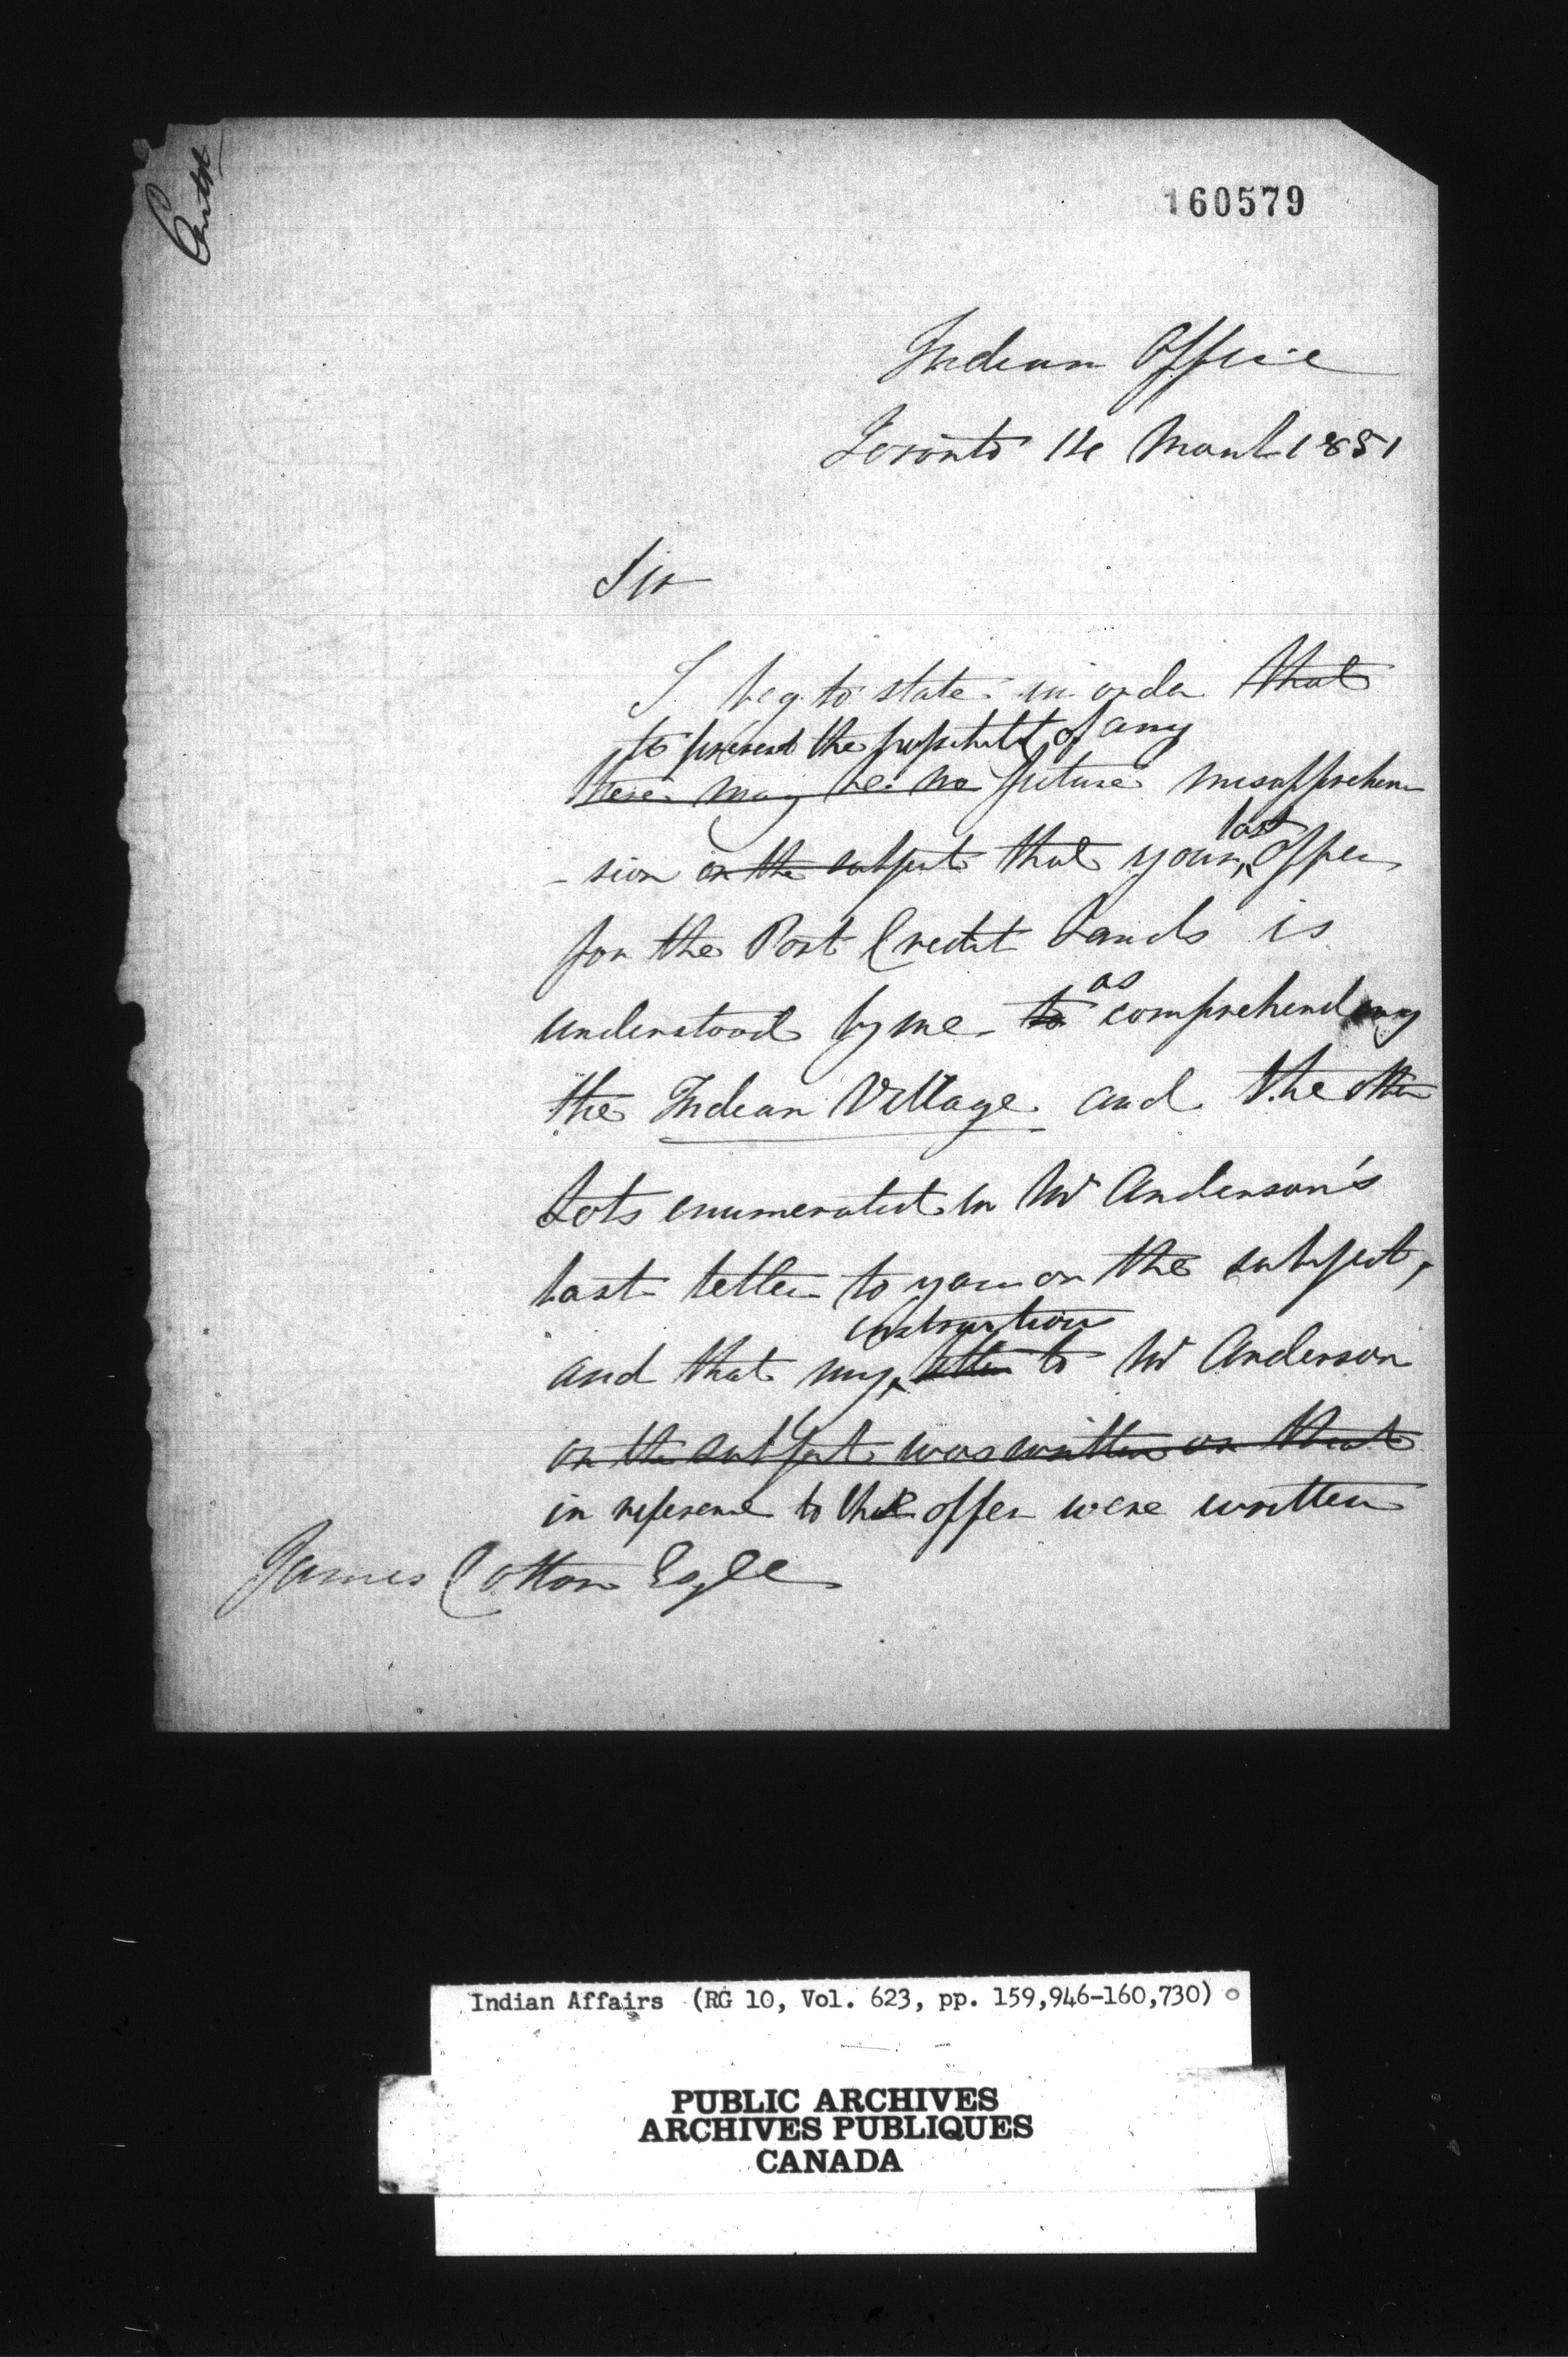 160579
Indian Office
Toronto 14 March 1851
Sir
I beg to state in order that
to prevent the possibility of any
there may be no future misapprehen
- sion on the subject that your last offer
for the Port Credit Lands is
understood by me to as comprehending
the Indian Village and the other
Lots enumerated in Mr Anderson's
last letter to you on the subject,
and that my instructions letter to Mr Anderson
on the subject was written on that
in reference to the offer were written
James Cotton Esqre
Indian Affairs (RG 10, Vol. 623, pp. 159,946-160,730)
PUBLIC ARCHIVES
ARCHIVES PUBLIQUES
CANADA